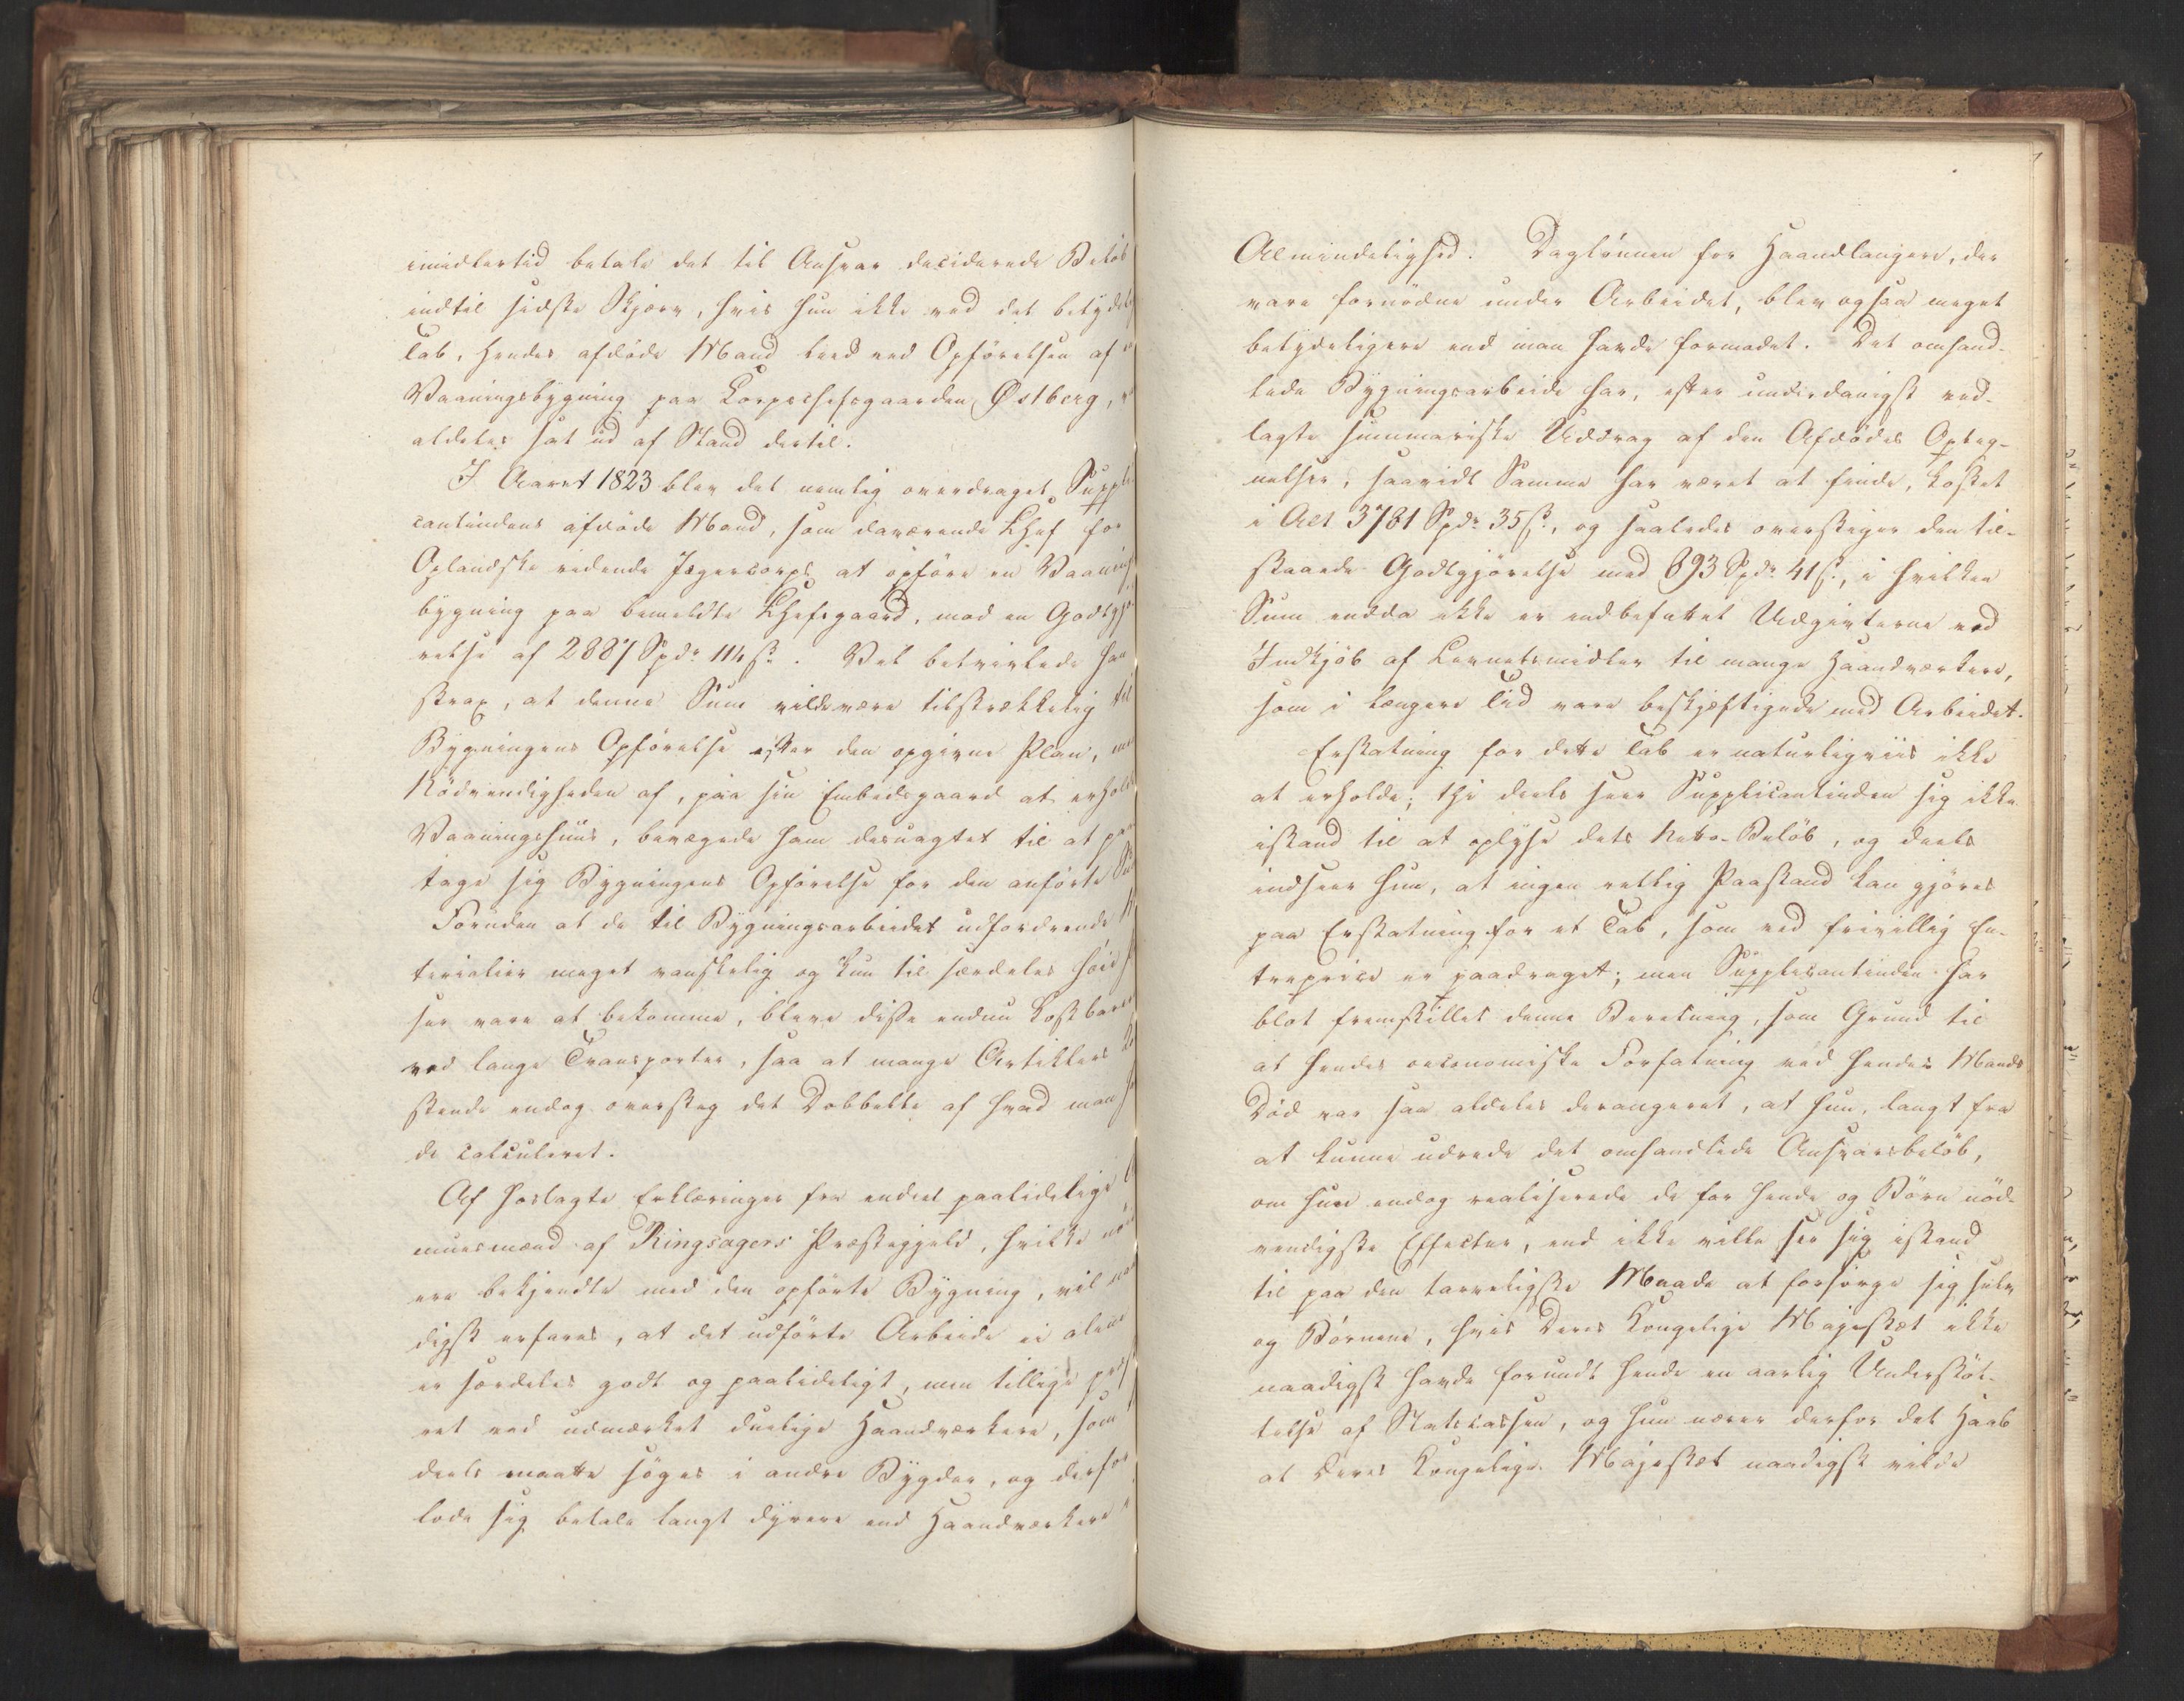 imidlertid betale det til Ansvar deciderede Beløb
indtil sidste Skjærv, hvis hun ikke ved det betyde
Tab, hendes afdøde Mand leed ved Opførelsen af
Vaaningsbygning paa Corpschefsgaarden Østberg,
aldeles sat ud af Stand dertil.
I Aaret 1823 blev det nemlig overdraget Suppli
cantindens afdøde Mand, som daværende Chef for
Oplandske ridende Jægercorps at opføre en Vaanings
bygning paa bemeldte Chefsgaard, mod en Godtgjø
relse af 2887 Spdr 114 s. Vel betvivlede han
strax, at denne Sum vilde være tilstrækkelig til
Bygningens Opførelse efter den opgivne Plan, men
Nødvendigheden af, paa sin Embedsgaard at erholde
Vaaningshuus, bevægede ham desuagtet til at paa
tage sig Bygningens Opførelse for den anførte Sum
Foruden at de til Bygningsarbeidet udfordrende
terialier meget vanskelig og kun til særdeles høie
ser vare at bekomme, bleve disse endnu kostbarere
ved lange Transporter, saa at mange Artiklers
stende endog oversteg det Dobbelte af hvad man
de calculeret.
Af hoslagte Erklæringer fra endeel paalidelige
muesmænd af Ringsagers Præstegjeld, hvilke nøie
ere bekjendte med den opførte Bygning, vil naa
digst erfares, at det udførte Arbeide ei alene
er særdeles godt og paalideligt, men tillige præs
ret ved udmærket duelige Haandværkere, som
deels maatte søges i andre Bygder, og derfor
lode sig betale langt dyrere end Haandværkere
Almindelighed. Daglønnen for Haandlangere, der
vare fornødne under Arbeidet, blev ogsaa meget
betydeligere end man havde formodet. Det omhand-
lede Bygningsarbeide har, efter underdanigst ved-
lagte summariske Uddrag af den Afdødes Opteg-
nelser, saavidt Samme har været at finde, kostet
i Alt 3781 Spdr 35 s., og saaledes overstiger den til-
staaede Godtgjørelse med 893 Spdr 41 s., i hvilken
Sum endda ikke er indbefattet Udgivterne ved
Indkjøb af Levnetsmidler til mange Haandværkere,
som i længere Tid vare beskjæftigede med Arbeidet.
Erstatning for dette Tab er naturligviis ikke
at erholde; thi deels seer Supplicantinden sig ikke
istand til at oplyse dets Netto-Beløb, og deels
indseer hun, at ingen retlig Paastand kan gjøres
paa Erstatning for et Tab, som ved frivillig En-
treprise er paadraget; men Supplicantinden har
blot fremstillet denne Beretning, som Grund til
at hendes oeconomiske Forfatning ved hendes Mands
Død var saa aldeles derangeret, at hun, langt fra
at kunne udrede det omhandlede Ansvarsbeløb,
om hun endog realiserede de for hende og Børn nød-
vendigste Effecter, end ikke ville see sig istand
til paa den tarveligste Maade at forsørge sig selv
og Børnene, hvis Deres Kongelige Majestæt ikke
naadigst havde forundt hende en aarlig Understøt-
telse af Statscassen, og hun nærer derfor det Haab
at Deres Kongelige Majestæt naadigst vilde